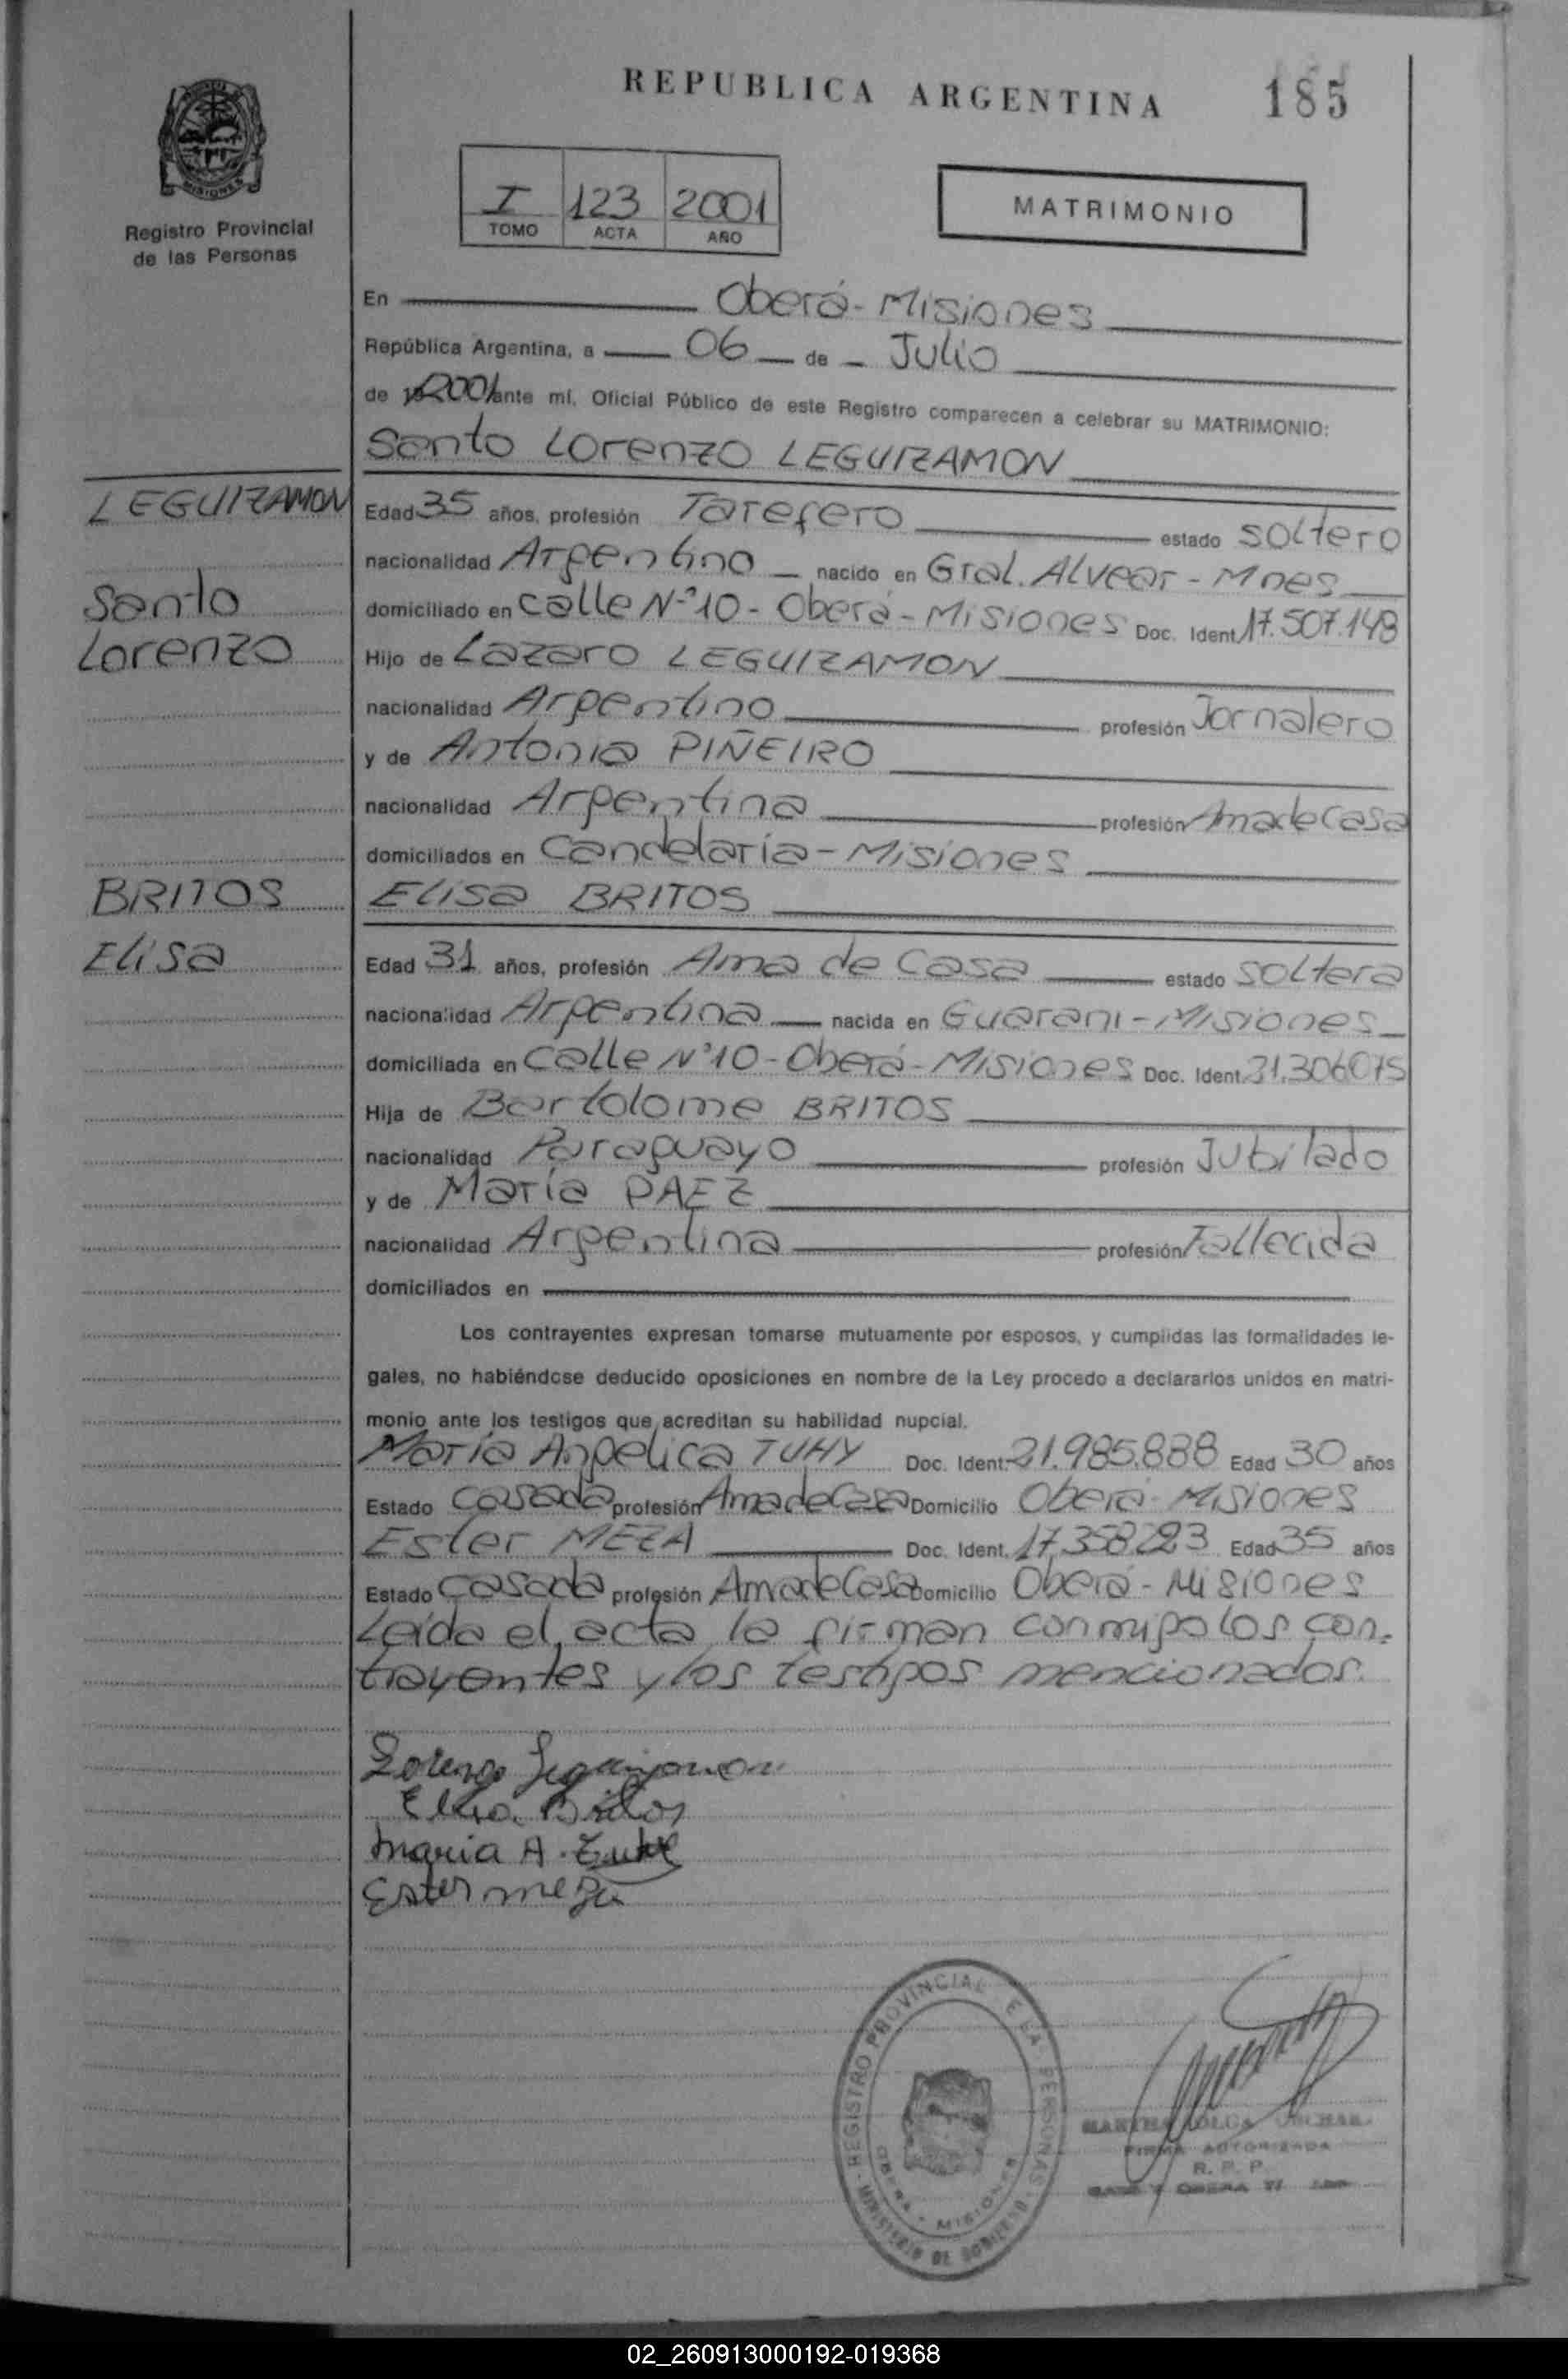 REPUBLICA ARGENTINA 185
MISIONES
Registro Provincial
de las Personas
I 123 2001
TOMO ACTA AÑO
MATRIMONIO
En Oberá - Misiones
República Argentina, a 06 de Julio
de 2001 ante mí, Oficial Público de este Registro comparecen a celebrar su MATRIMONIO:
Santo Lorenzo LEGUIZAMON
LEGUIZAMON
Santo
Lorenzo
Edad 35 años, profesión Tarefero estado soltero
nacionalidad Argentino nacido en Gral. Alvear - Mnes
domiciliado en calle N° 10 - Oberá - Misiones Doc. Ident. 17.507.148
Hijo de Lazaro LEGUIZAMON
nacionalidad Argentino profesión Jornalero
y de Antonia PIÑEIRO
nacionalidad Argentina profesión Ama de Casa
domiciliados en Candelaría - Misiones
BRITOS
Elisa
Elisa BRITOS
Edad 31 años, profesión Ama de Casa estado soltera
nacionalidad Argentina nacida en Guarani - Misiones
domiciliada en calle N° 10 - Oberá - Misiones Doc. Ident. 31.306.075
Hija de Bartolome BRITOS
nacionalidad Paraguayo profesión Jubilado
y de María PAEZ
nacionalidad Argentina profesión Fallecida
domiciliados en
Los contrayentes expresan tomarse mutuamente por esposos, y cumplidas las formalidades le-
gales, no habiéndose deducido oposiciones en nombre de la Ley procedo a declararlos unidos en matri-
monio ante los testigos que acreditan su habilidad nupcial.
María Angelica TUHY Doc. Ident. 21.985.888 Edad 30 años
Estado casada profesión Ama de Casa Domicilio Oberá - Misiones
Ester MEZA Doc. Ident. 17.358.223 Edad 35 años
Estado casada profesión Ama de Casa Domicilio Oberá - Misiones
Leída el acta la firman conmigo los con-
trayentes y los testigos mencionados.
Lorenzo Leguizamon
Elisa Britos
Maria A. Tuhy
Ester meza
REGISTRO PROVINCIAL DE LAS PERSONAS
MINISTERIO DE GOBIERNO
OBERA - MISIONES
MARTHA OLGA
FIRMA AUTORIZADA
R. P. P.
OBERA
02_260913000192-019368